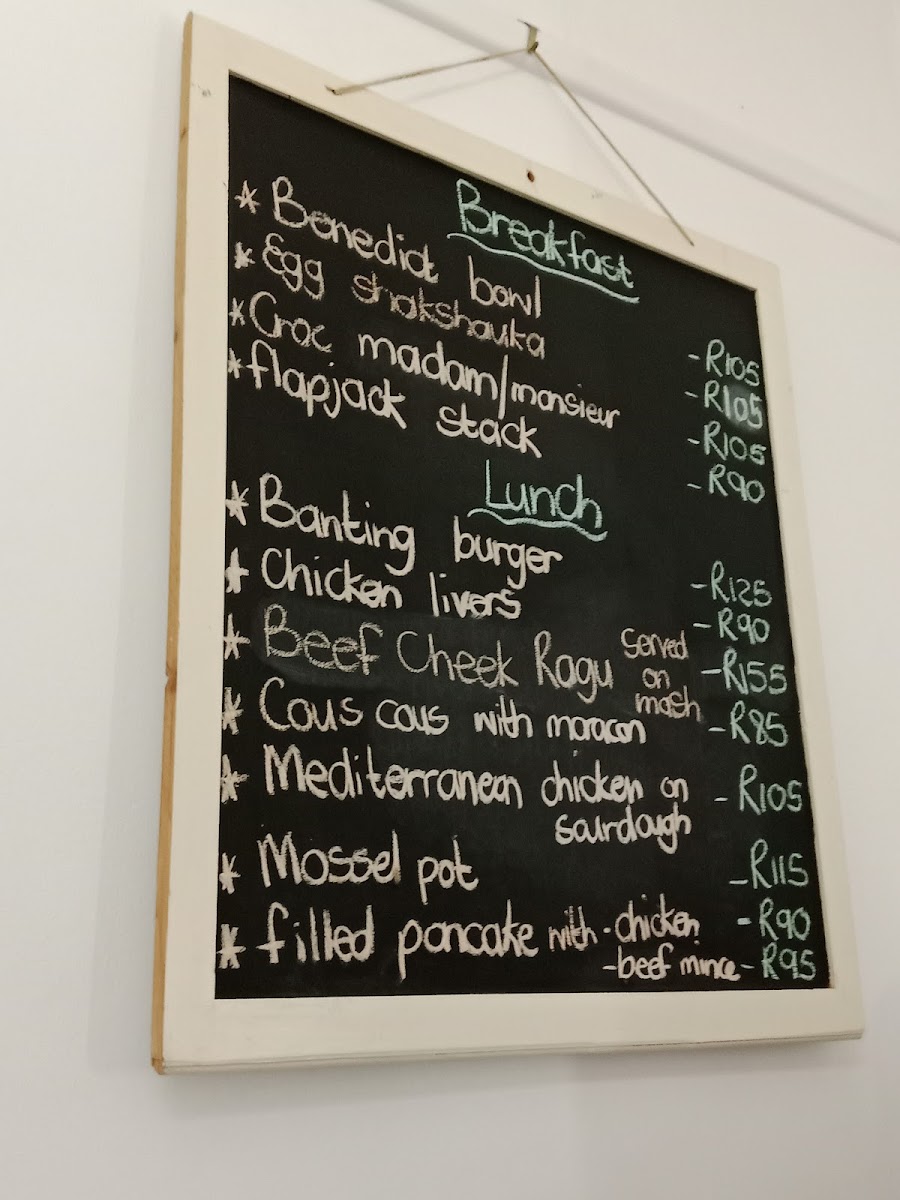 Breakfast
* Benedict bowl - R105
* Egg shakshauka - R105
* Croc madam/monsieur - R105
* flapjack stack - R90
Lunch
* Banting burger - R125
* Chicken livers - R90
* Beef Cheek Ragu Served on mash - R155
* Cous cous with moracon - R85
* Mediterranean chicken on sourdough - R105
* Mossel pot - R115
* filled pancake with - chicken - R90
- beef mince - R95